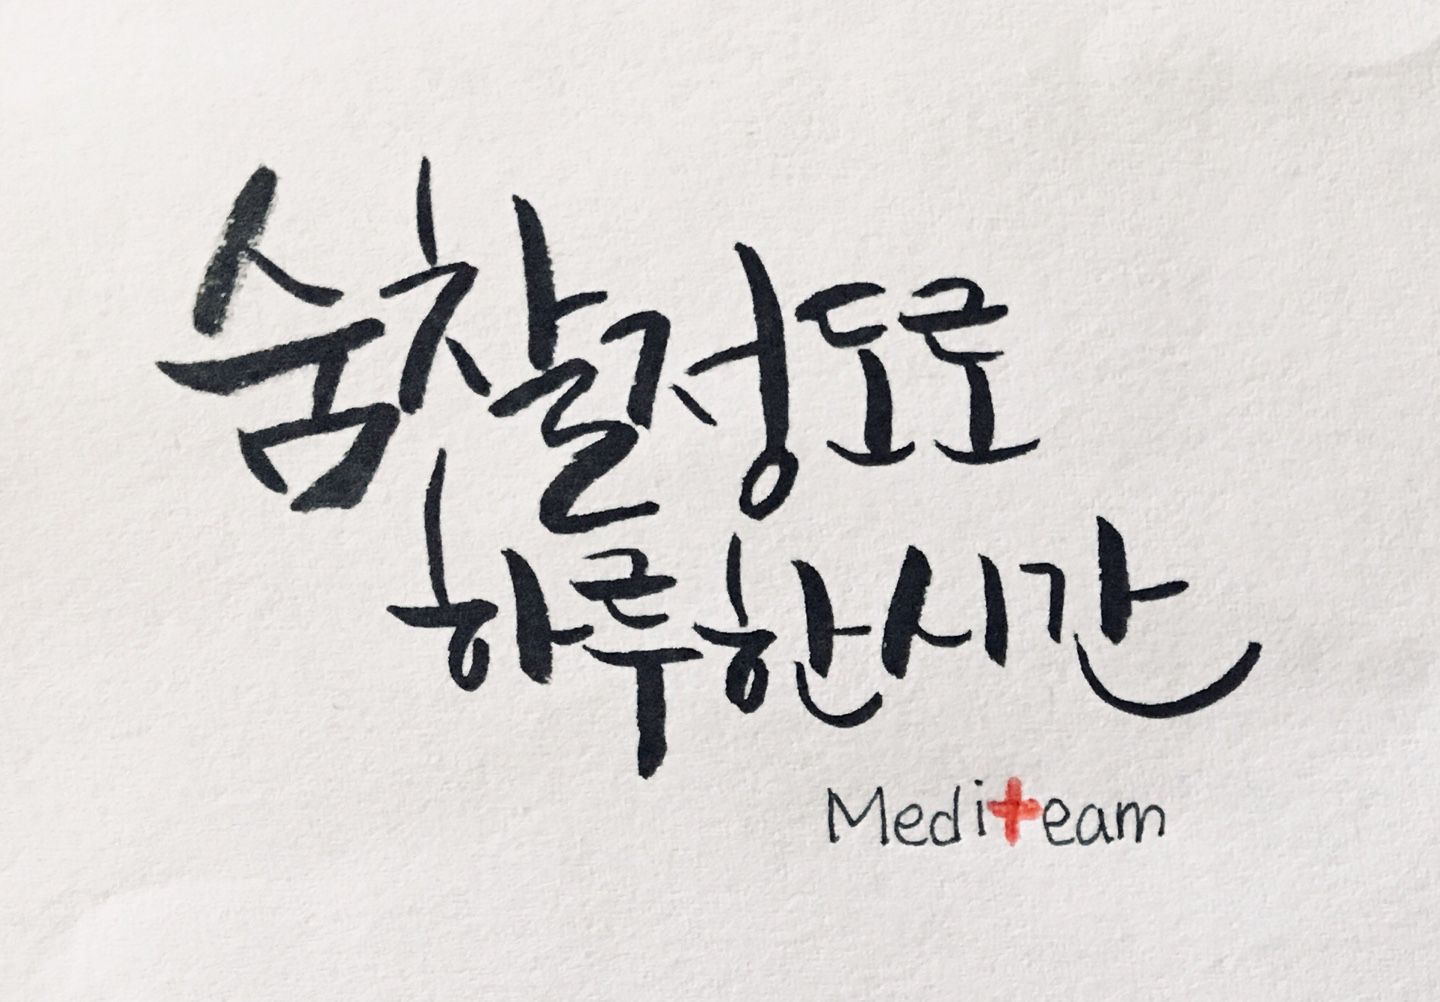 숨찰정도로
하루한시간
Mediteam